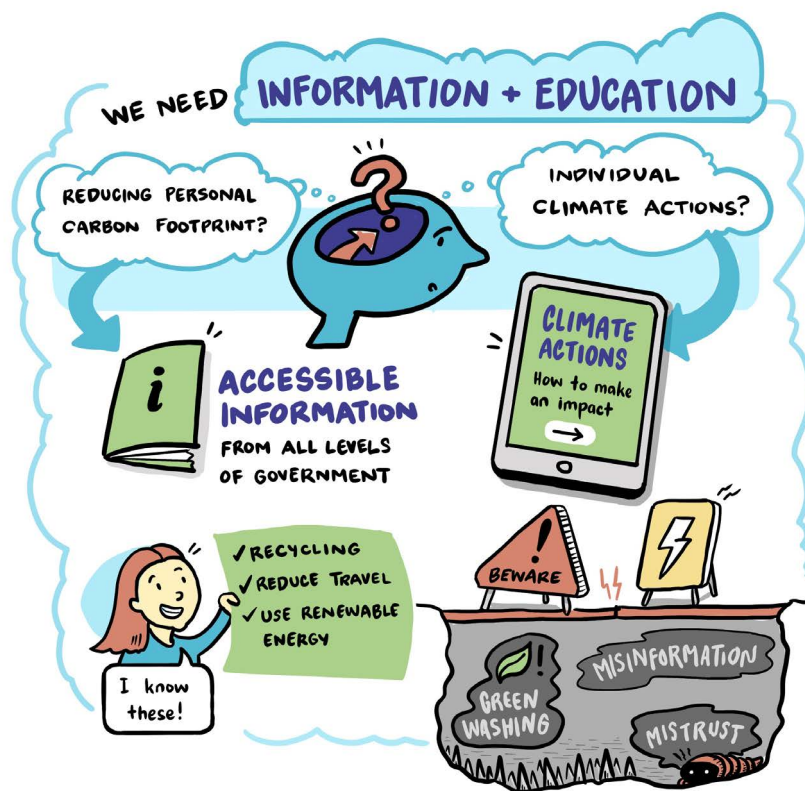 WE NEED INFORMATION + EDUCATION
REDUCING PERSONAL
CARBON FOOTPRINT?
?
INDIVIDUAL
CLIMATE ACTIONS?
i
ACCESSIBLE
INFORMATION
FROM ALL LEVELS
OF GOVERNMENT
CLIMATE
ACTIONS
How to make
an impact
✓ RECYCLING
✓ REDUCE TRAVEL
✓ USE RENEWABLE
ENERGY
I know
these!
!
BEWARE
!
GREEN
WASHING
MISINFORMATION
MISTRUST